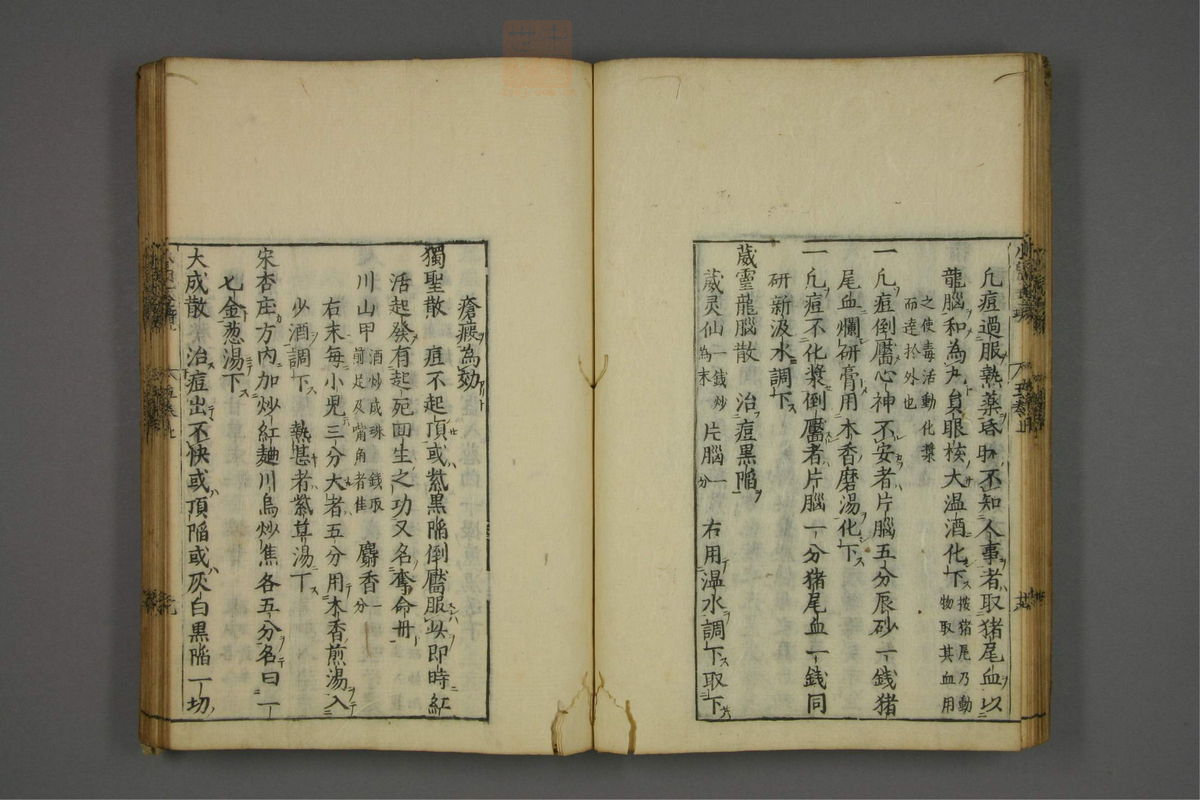 凢痘過服熱薬昏眊不知人事者取猪尾血以
龍腦和為丸貟眼核大温酒化下按猪尾乃動物取其血用
之使毒活動化漿而達扵外也
一凢痘倒靨心神不安者片腦五分辰砂一銭猪
尾血爛研膏用木香磨湯化下
一凢痘不化漿倒靨者片腦一分猪尾血一銭同
研新汲水調下
葳靈龍腦散 治痘黒陥
葳灵仙一銭炒為末 片腦一分 右用温水調下取下
瘡疲為効
獨聖散 痘不起頂或紫黒陥倒靨服此即時紅
活起發有起死囬生之功又名奪命丹
川山甲酒炒成珠一銭取前足及嘴角者佳 麝香一分
右末每小児三分大者五分用木香煎湯入
少酒調下熱甚者紫草湯下
宋杏庄方内加炒紅麯川烏炒焦各五分名曰一
七金葱湯下
大成散 治痘出不快或頂陥或灰白黒陥一切